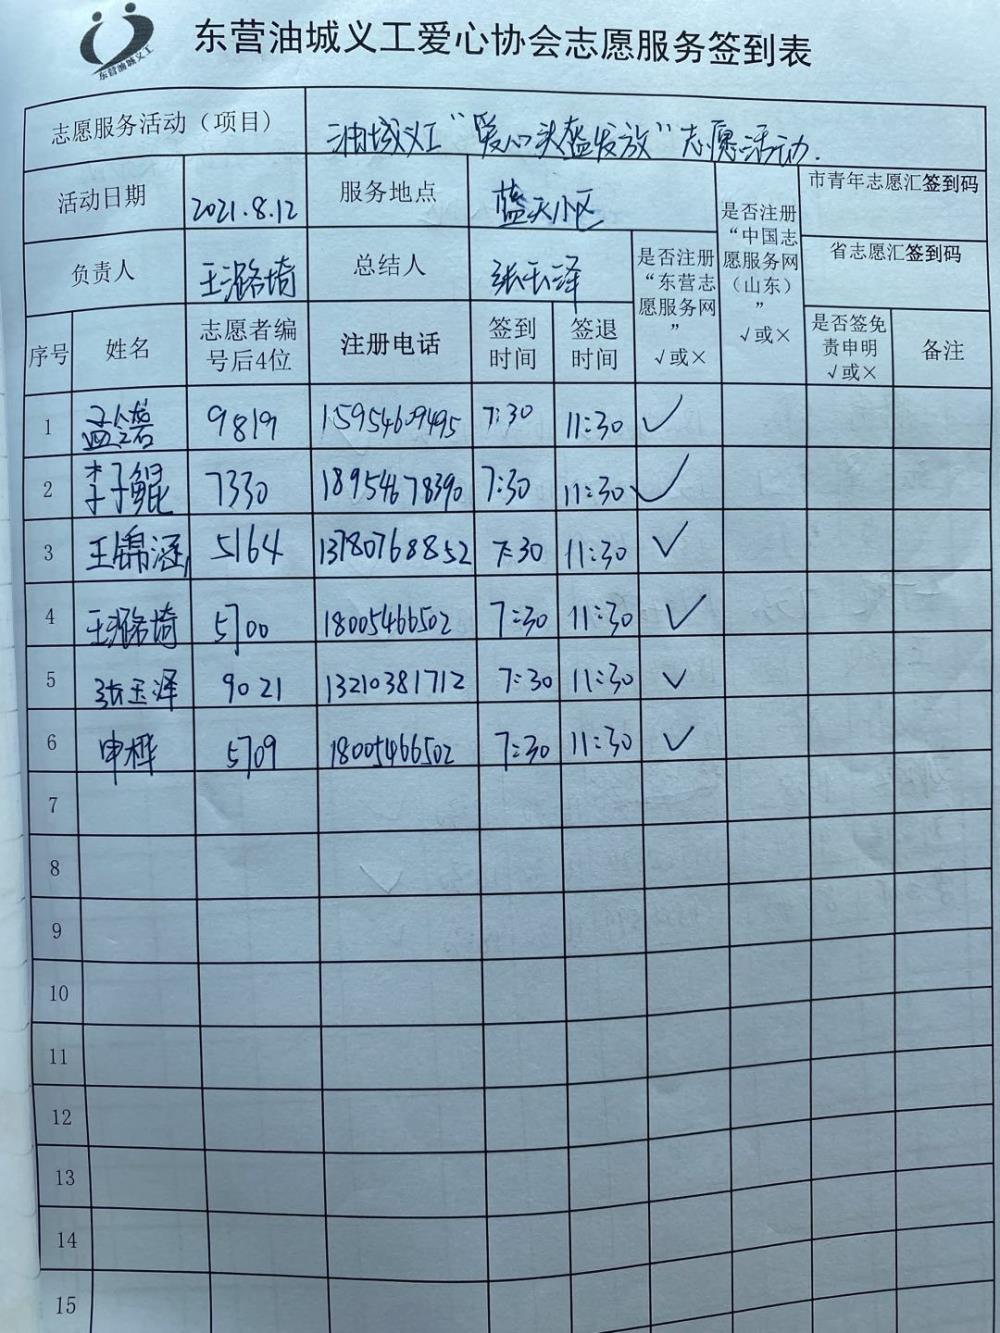 东营油城义工
东营油城义工爱心协会志愿服务签到表
志愿服务活动（项目） 油城义工“爱心头盔发放”志愿活动.
活动日期 2021.8.12 服务地点 蓝天小区 是否注册“中国志愿服务网（山东）” √或× 市青年志愿汇签到码
省志愿汇签到码
负责人 王潞埼 总结人 张玉泽 是否注册“东营志愿服务网” √或×
序号 姓名 志愿者编号后4位 注册电话 签到时间 签退时间 是否签免责申明 √或× 备注
1 9819 15954609495 7:30 11:30 ✓
2 李子鲲 7330 18954678390 7:30 11:30 ✓
3 王锦涵 5164 13780768852 7:30 11:30 ✓
4 王潞埼 5700 18005466502 7:30 11:30 ✓
5 张玉泽 9021 13210381712 7:30 11:30 ✓
6 申桦 5709 18005466502 7:30 11:30 ✓
7
8
9
10
11
12
13
14
15